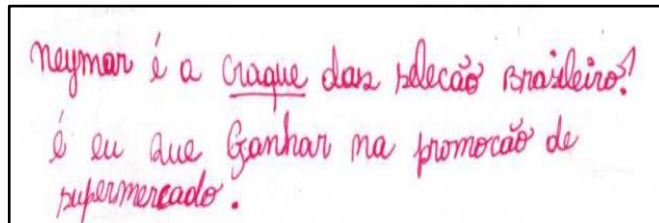 Neymar é a craque das selecão Brasileiro!
é eu que Ganhar na promocão de
supermercado.